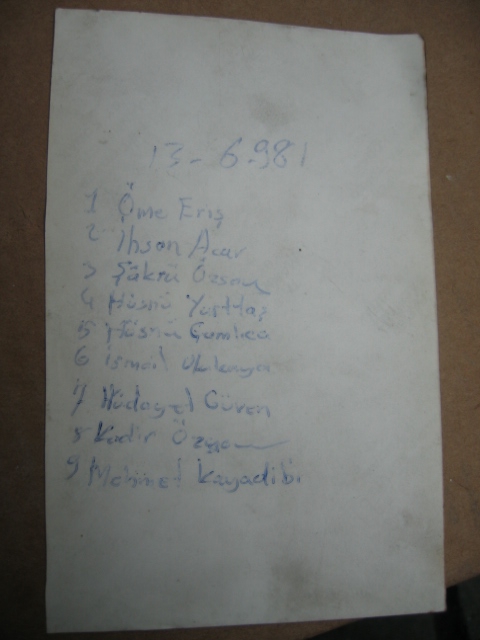 13-6-981
1 Öme Eriş
2 İhsan Acar
3 Şükrü
4 Hüsnü Yurttaş
5 Hüsnü Çamlıca
6 İsmail
7 Hüdayet Güven
8 Kadir
9 Mehmet Kayadibi